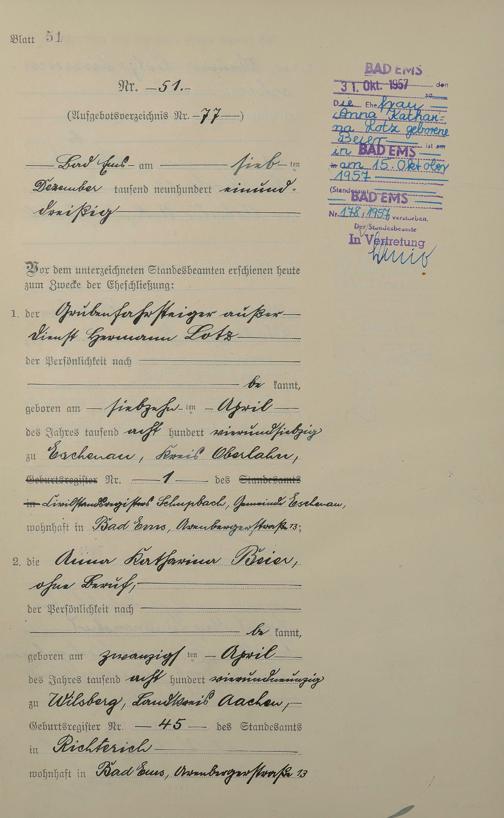 Blatt 51
Nr. 51.
(Aufgebotsverzeichnis Nr. 77)
Bad Ems am sieb ten
Dezember tausend neunhundert einund-
dreißig
Vor dem unterzeichneten Standesbeamten erschienen heute
zum Zwecke der Eheschließung:
1. der Grubenfahrsteiger außer
Dienst Hermann Lotz
der Persönlichkeit nach
be kannt,
geboren am siebzehn ten April
des Jahres tausend acht hundert vierundsiebzig
zu Eschenau, Kreis Oberlahn,
Geburtsregister Nr. 1 des Standesamts
in Civilstandsregisters Schupbach, Gemeinde Eschenau,
wohnhaft in Bad Ems, Arenbergerstraße 13;
2. die Anna Katharina Beier,
ohne Beruf,
der Persönlichkeit nach
be kannt,
geboren am zwanzigs ten April
des Jahres tausend acht hundert vierundneunzig
zu Wilsberg, Landkreis Aachen,
Geburtsregister Nr. 45 des Standesamts
in Richterich
wohnhaft in Bad Ems, Arenbergerstraße 13
BAD EMS
31. Okt. 1957 den
Die Ehefrau
Anna Kathari-
na Lotz geborene
Beier ist am
in BAD EMS
am 15. Oktober
1957
(Standesamt
BAD EMS
Nr. 178/1957 verstorben.
Der Standesbeamte
In Vertretung